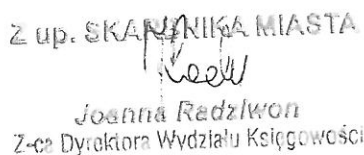 Z up. SKARBNIKA MIASTA
Joanna Radziwon
Z-ca Dyrektora Wydziału Księgowości